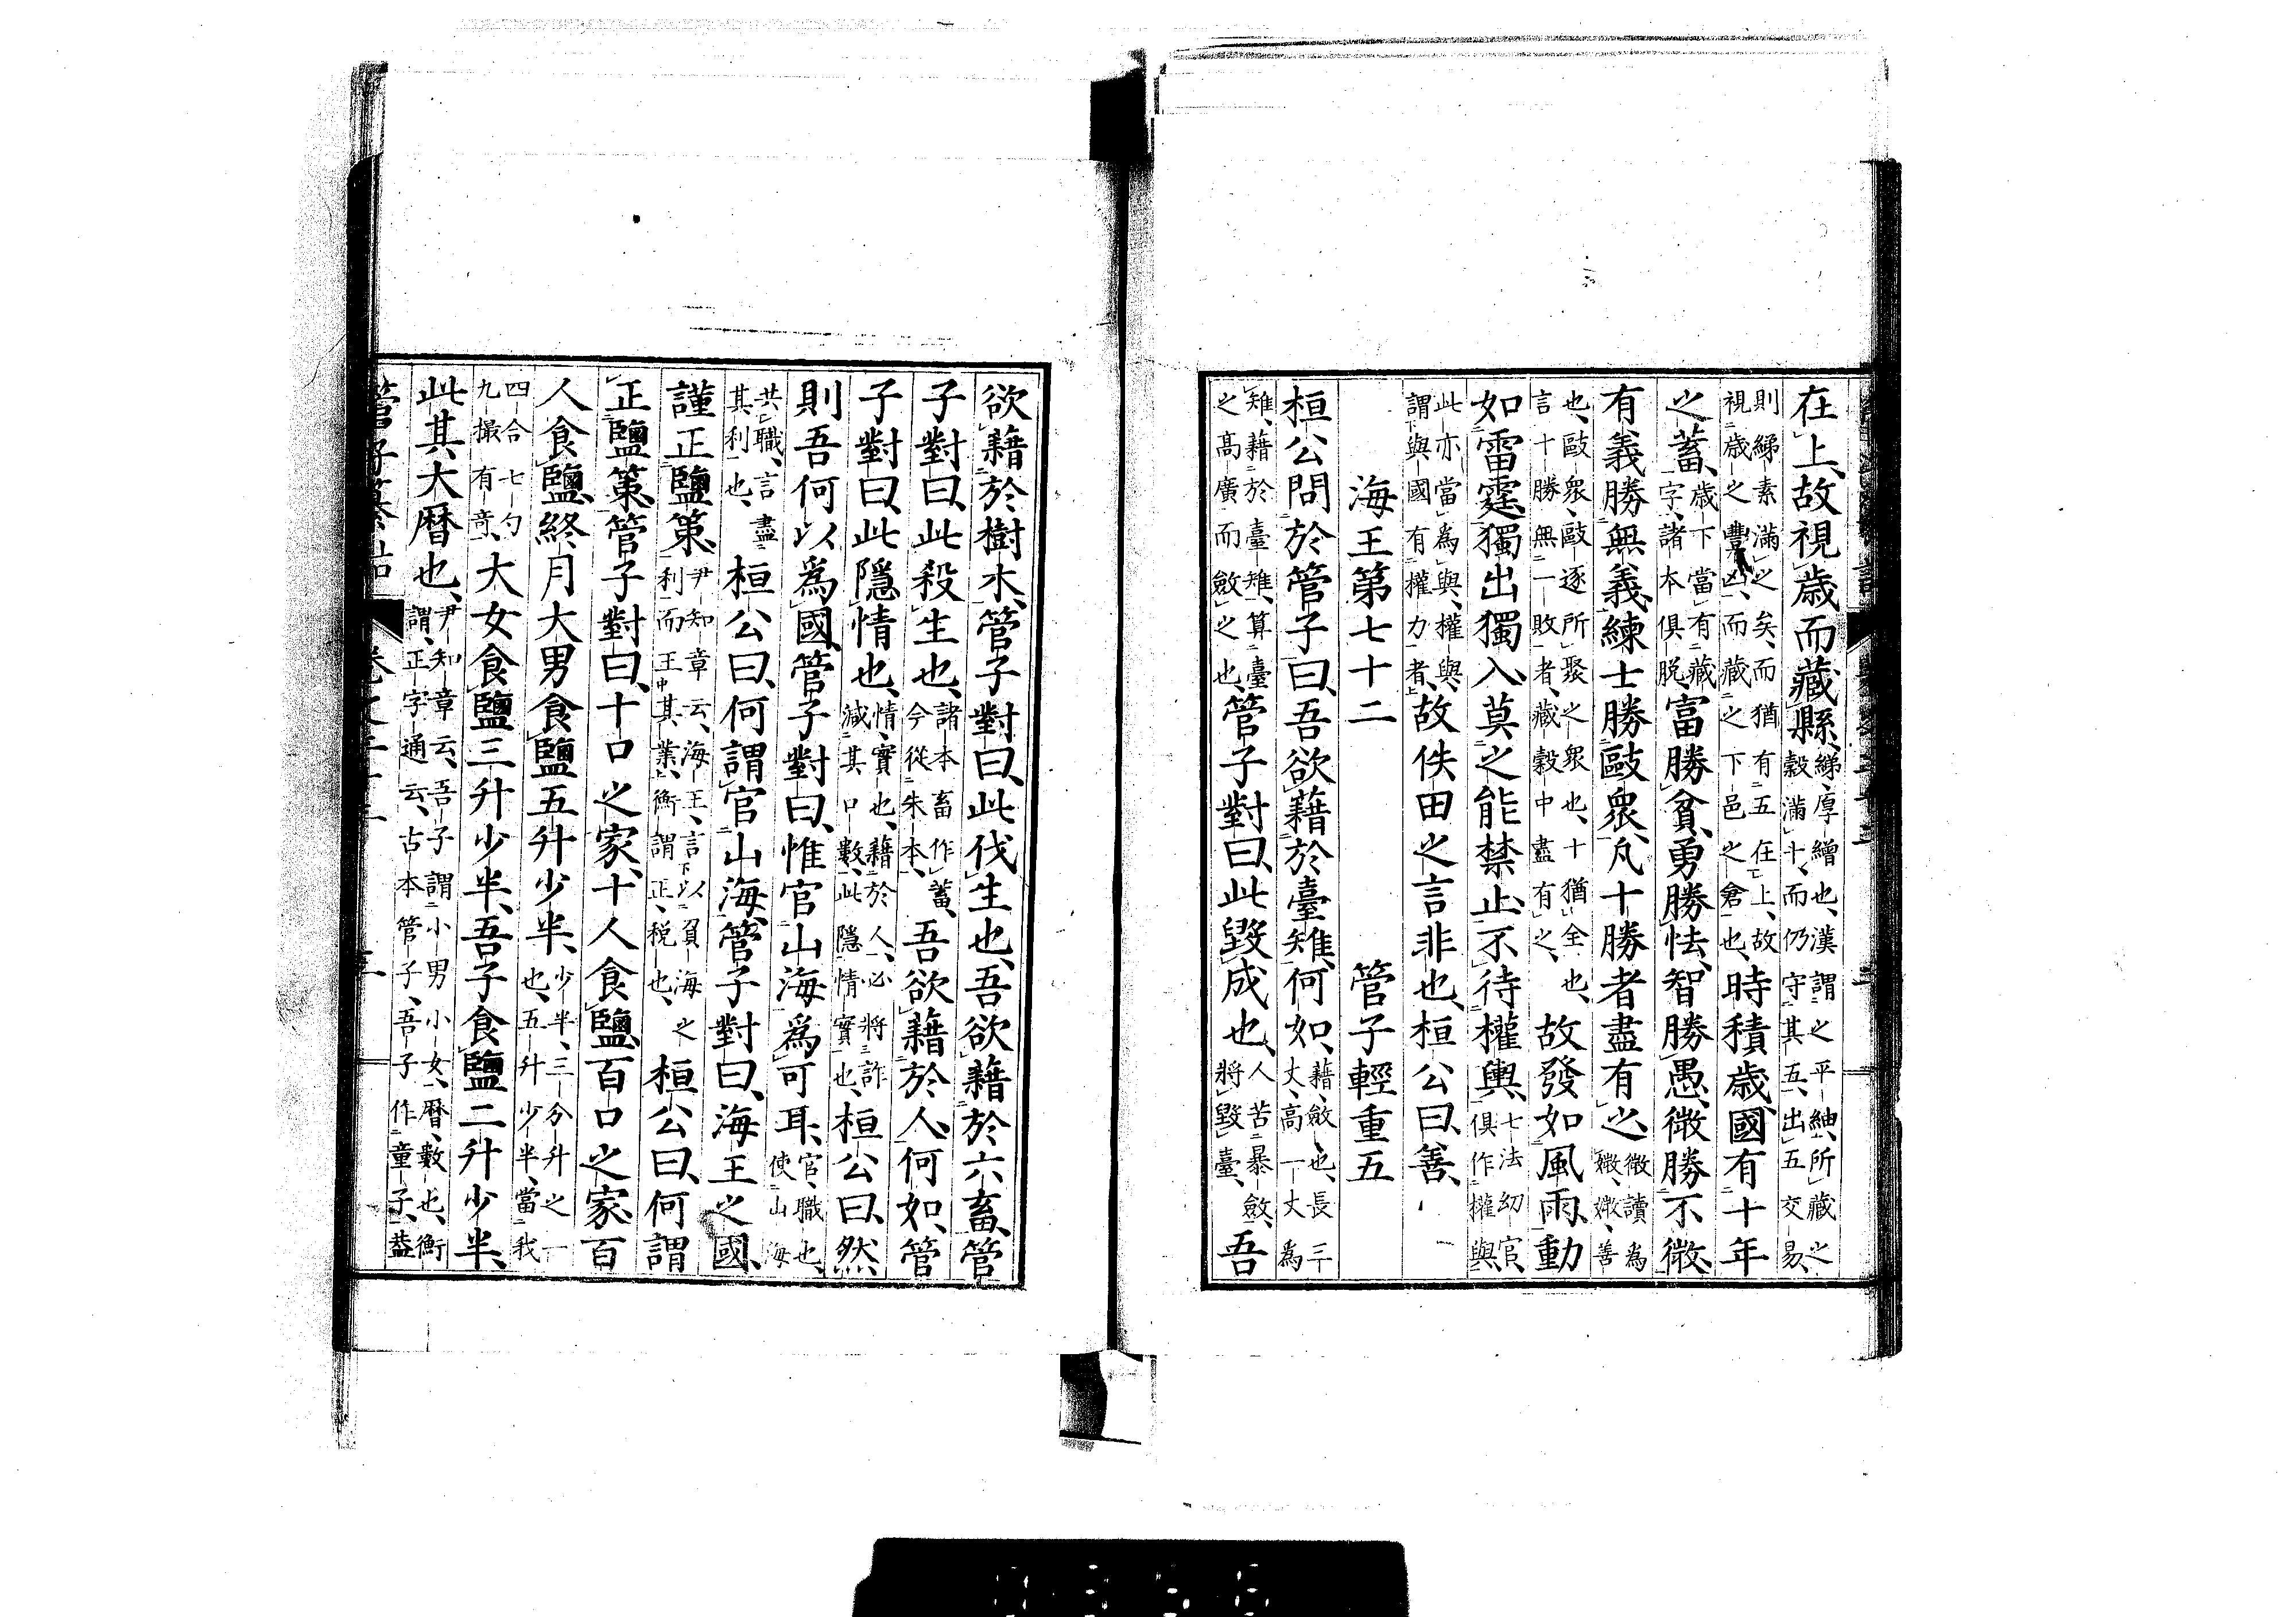 在上、故視歲而藏縣、綈、厚繒也、漢謂之平紬、所藏之穀滿十、而仍守其五、出五交易、
則綈素滿之矣、而猶有五在上、故視歲之豐凶、而藏之下邑之倉也、時積歲、國有十年
之蓄、歲下當有藏字、諸本俱脫、富勝貧、勇勝怯、智勝愚、微勝不微、
有義勝無義、練士勝敺衆、凡十勝者盡有之、微讀爲媺、媺、善
也、敺衆、敺逐所聚之衆也、十猶全也、言十勝無一敗者、藏穀中盡有之、故發如風雨、動
如雷霆、獨出獨入、莫之能禁止、不待權輿、七法幼官、俱作權與、
此亦當爲與、權與、謂與國有權力者、故佚田之言非也、桓公曰、善、
海王第七十二 管子輕重五
桓公問於管子曰、吾欲藉於臺雉、何如、藉、斂也、長三丈、高一丈爲
雉、藉於臺雉、算臺之高廣而斂之也、管子對曰、此毀成也、人苦暴斂、將毀臺、吾
欲藉於樹木、管子對曰、此伐生也、吾欲藉於六畜、管
子對曰、此殺生也、諸本畜作蓄、今從朱本、吾欲藉於人、何如、管
子對曰、此隱情也、情、實也、藉於人、必將詐減其口數、此隱情實也、桓公曰、然
則吾何以爲國、管子對曰、惟官山海爲可耳、官、職也、使山海
共職、言盡其利也、桓公曰、何謂官山海、管子對曰、海王之國、
謹正鹽筴、尹知章云、海王、言以負海之利而王其業、衡謂正、稅也、桓公曰、何謂
正鹽筴、管子對曰、十口之家、十人食鹽、百口之家、百
人食鹽、終月大男食鹽五升少半、少半、三分升之一也、五升少半、當我
四合七勺九撮有奇、大女食鹽三升少半、吾子食鹽二升少半、
此其大曆也、尹知章云、吾子謂小男小女、曆、數也、衡謂、正字通云、古本管子、吾子作童子、葢
管子纂詁